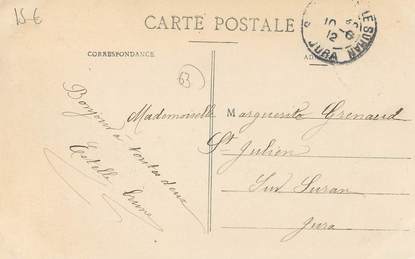 15 €
CARTE POSTALE
CORRESPONDANCE
63
LE SURAN
12
JURA
Bonjour à toutes deux
Estelle
Mademoiselle Marguerite Grenaud
St Julien
Sur Suran
Jura